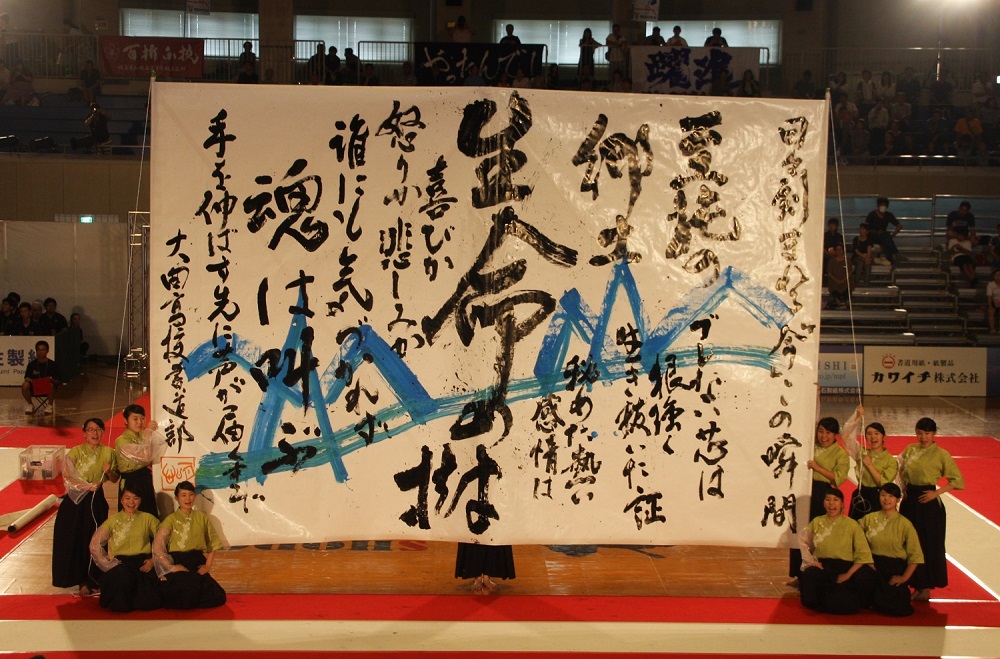 百折不撓
やったんでい
躍進
日々刻まれる今この瞬間
仰
ブレない芯は
根強く
生き抜いた証
秘めた熱い
感情は
生命の樹
喜びか
怒りか悲しみか
誰にも気づかれず
魂は叫ぶ
手を伸ばす先に声が届くまで
書道用紙・紙製品
カワイチ株式会社